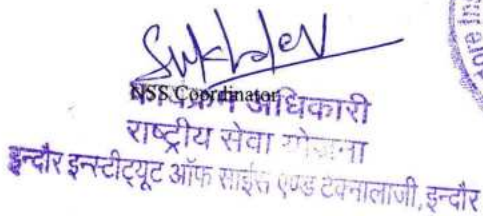 Sukhdev
NSS Coordinator
कार्यक्रम अधिकारी
राष्ट्रीय सेवा योजना
इन्दौर इन्स्टीट्यूट ऑफ साईंस एण्ड टेक्नालाजी, इन्दौर